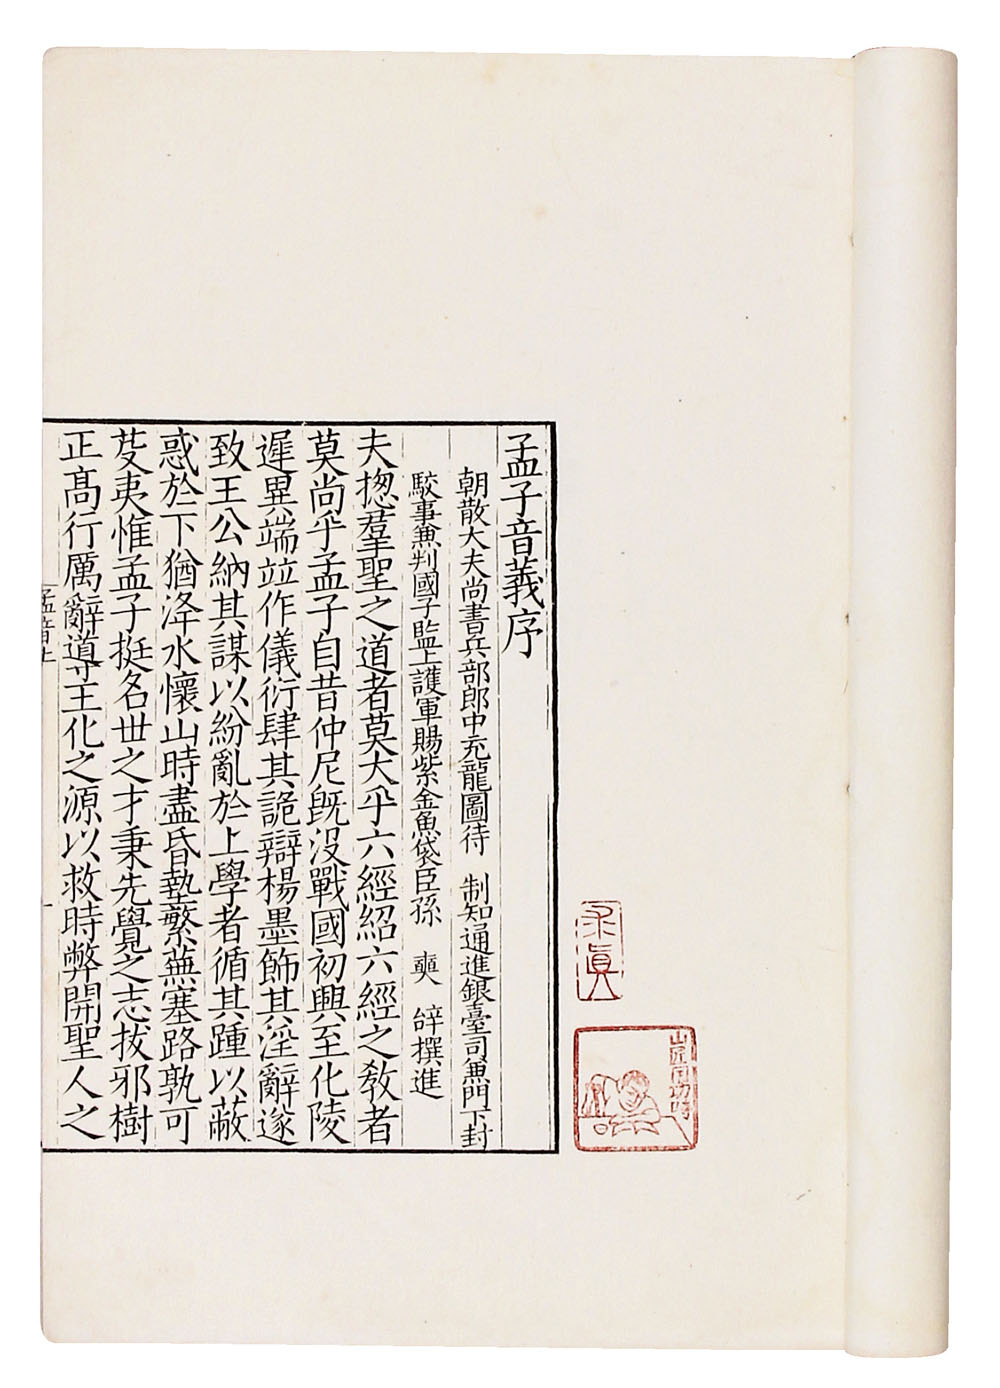 孟子音義序
朝散大夫尚書兵部郎中充龍圖待　制知通進銀臺司兼門下封
駮事兼判國子監上護軍賜紫金魚袋臣孫　奭　辝撰進
夫揔羣聖之道者莫大乎六經紹六經之敎者
莫尚乎孟子自昔仲尼旣没戰國初興至化陵
遲異端竝作儀衍肆其詭辯楊墨飾其淫辭遂
致王公納其謀以紛亂於上學者循其踵以蔽
惑於下猶洚水懷山時盡昏墊繁蕪塞路孰可
芟夷惟孟子挺名世之才秉先覺之志拔邪樹
正高行厲辭導王化之源以救時弊開聖人之
孟音上
一
求眞